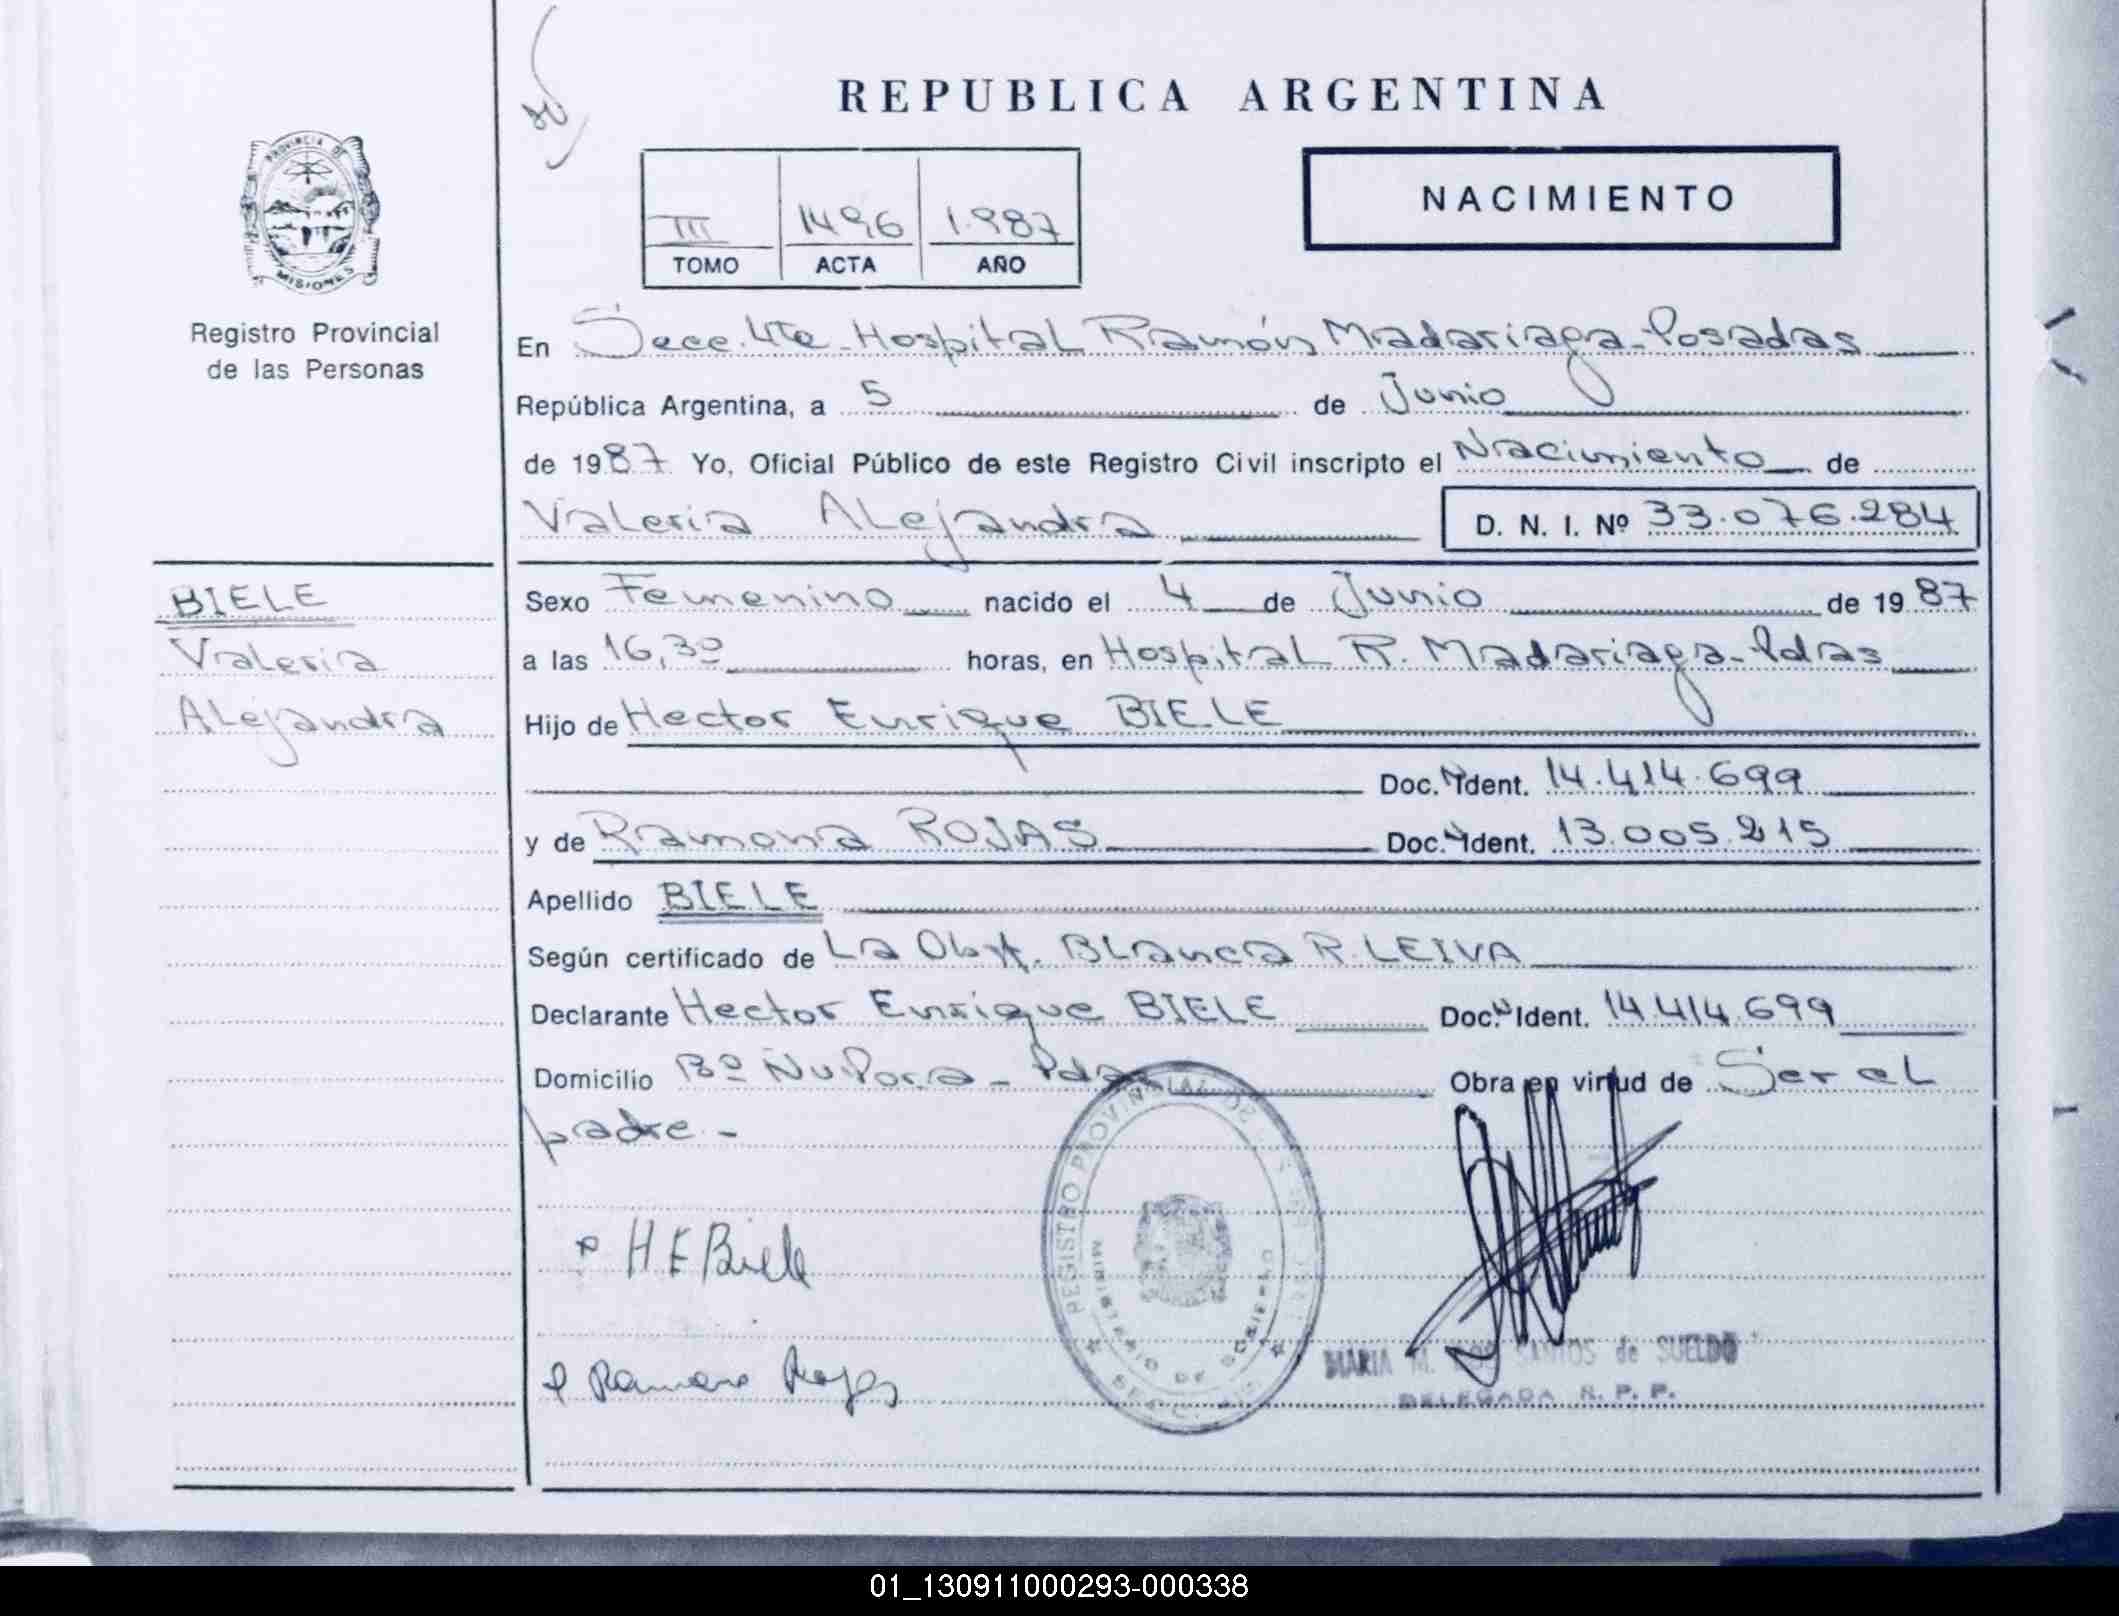 REPUBLICA ARGENTINA
PROVINCIA DE
MISIONES
Registro Provincial
de las Personas
III 1496 1.987
TOMO ACTA AÑO
NACIMIENTO
En Secc. 4ta - Hospital Ramón Madariaga - Posadas
República Argentina, a 5 de Junio
de 1987 Yo, Oficial Público de este Registro Civil inscripto el Nacimiento de
Valeria Alejandra D. N. I. Nº 33.076.284
BIELE
Valeria
Alejandra
Sexo Femenino nacido el 4 de Junio de 1987
a las 16,30 horas, en Hospital R. Madariaga - Pdas
Hijo de Hector Enrique BIELE
Doc. Ident. 14.414.699
y de Ramona ROJAS Doc. Ident. 13.005.215
Apellido BIELE
Según certificado de La Obst. Blanca R. LEIVA
Declarante Hector Enrique BIELE Doc. Ident. 14.414.699
Domicilio Bº Ñu Pora - Pdas Obra en virtud de Ser el
padre -
REGISTRO PROVINCIAL DE
MINISTERIO DE GOBIERNO
SECC.
H E Biele
Ramona Rojas
MARIA M. DOS SANTOS de SUELDO
DELEGADA R. P. P.
01_130911000293-000338